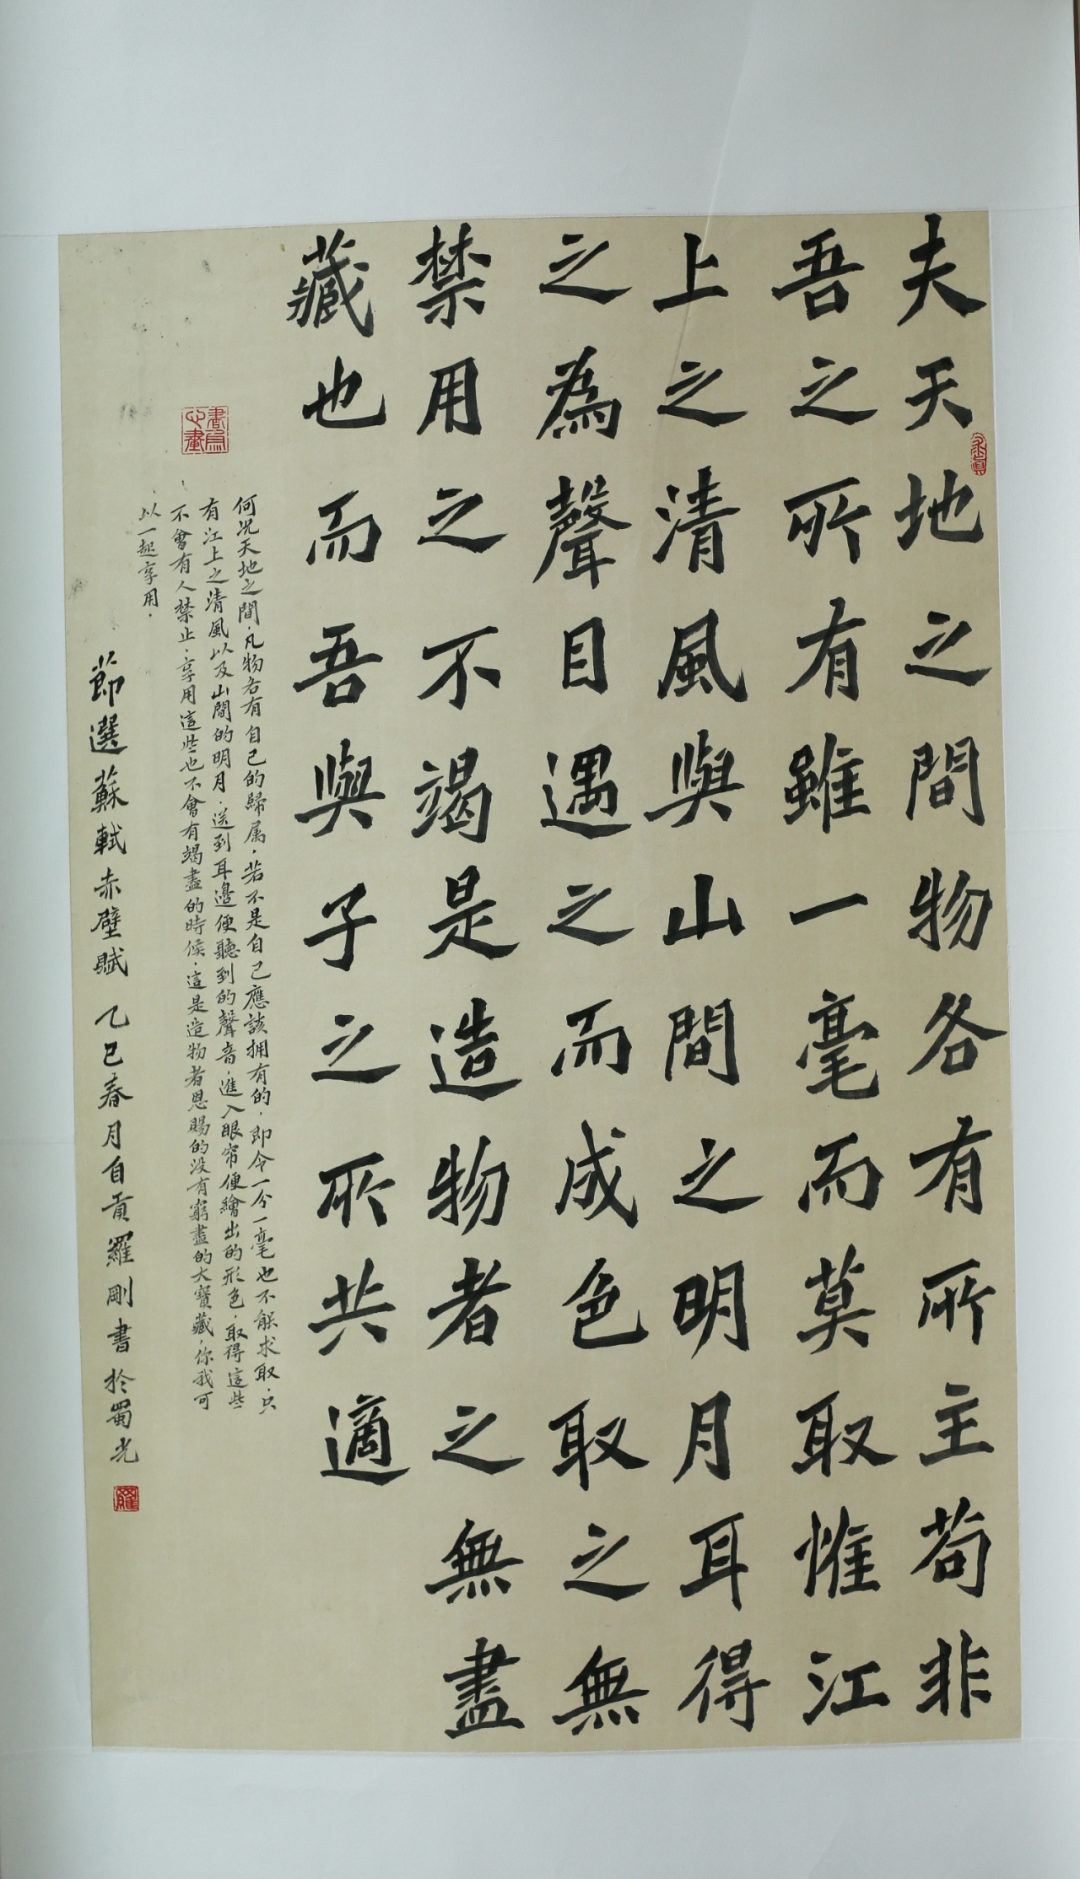 夫天地之間物各有所主苟非
吾之所有雖一毫而莫取惟江
上之清風與山間之明月耳得
之為聲目遇之而成色取之無
禁用之不竭是造物者之無盡
藏也而吾與子之所共適
何況天地之間，凡物各有自己的歸属，若不是自己應該拥有的，即令一分一毫也不能求取，只
有江上之清風以及山間的明月，送到耳邊便聽到的聲音，進入眼帘便繪出的形色，取得這些
不會有人禁止，享用這些也不會有竭盡的時候，這是造物者恩賜的没有窮盡的大寶藏，你我可
以一起享用。
節選蘇軾赤壁賦 乙巳春月自貢羅剛書於蜀光
書為心畫
羅